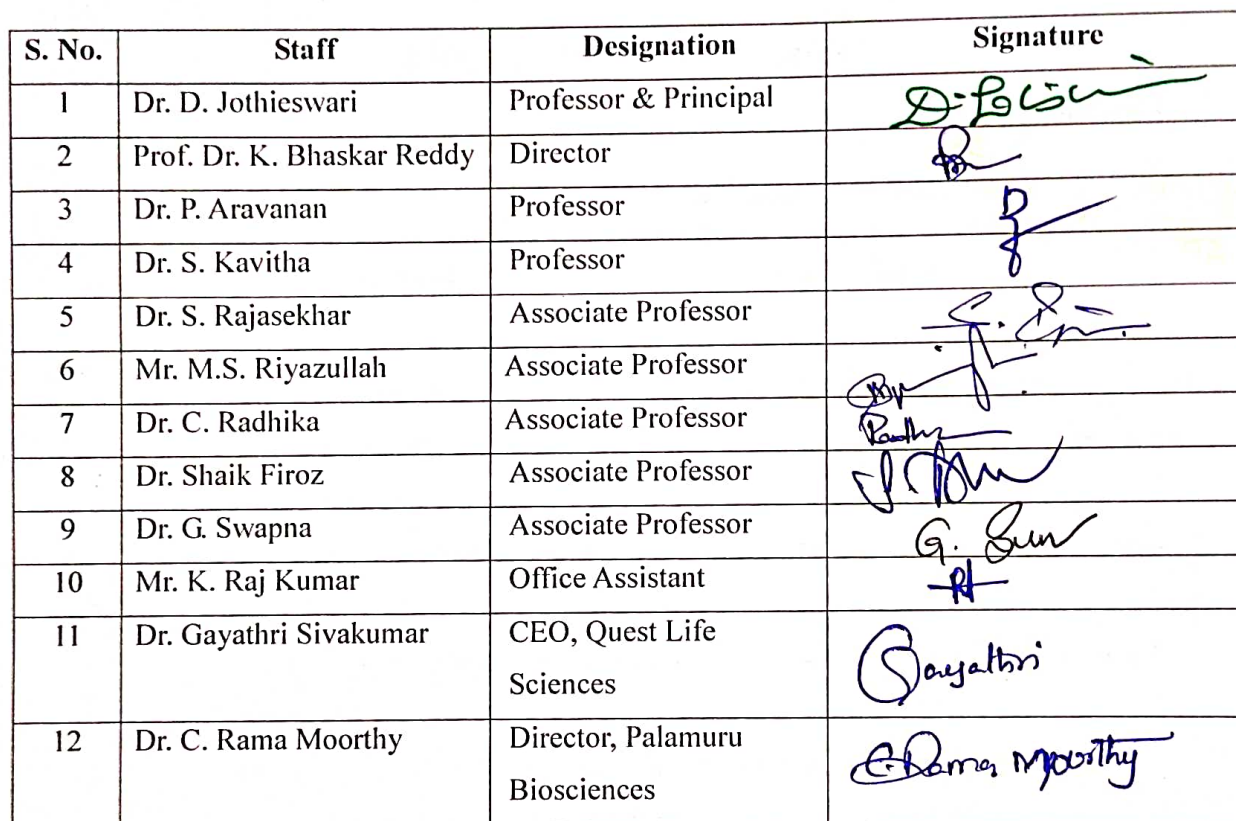 S. No. Staff Designation Signature
1 Dr. D. Jothieswari Professor & Principal
2 Prof. Dr. K. Bhaskar Reddy Director
3 Dr. P. Aravanan Professor
4 Dr. S. Kavitha Professor
5 Dr. S. Rajasekhar Associate Professor
6 Mr. M.S. Riyazullah Associate Professor
7 Dr. C. Radhika Associate Professor
8 Dr. Shaik Firoz Associate Professor
9 Dr. G. Swapna Associate Professor G.
10 Mr. K. Raj Kumar Office Assistant
11 Dr. Gayathri Sivakumar CEO, Quest Life Gayathri
Sciences
12 Dr. C. Rama Moorthy Director, Palamuru C. Rama Moorthy
Biosciences